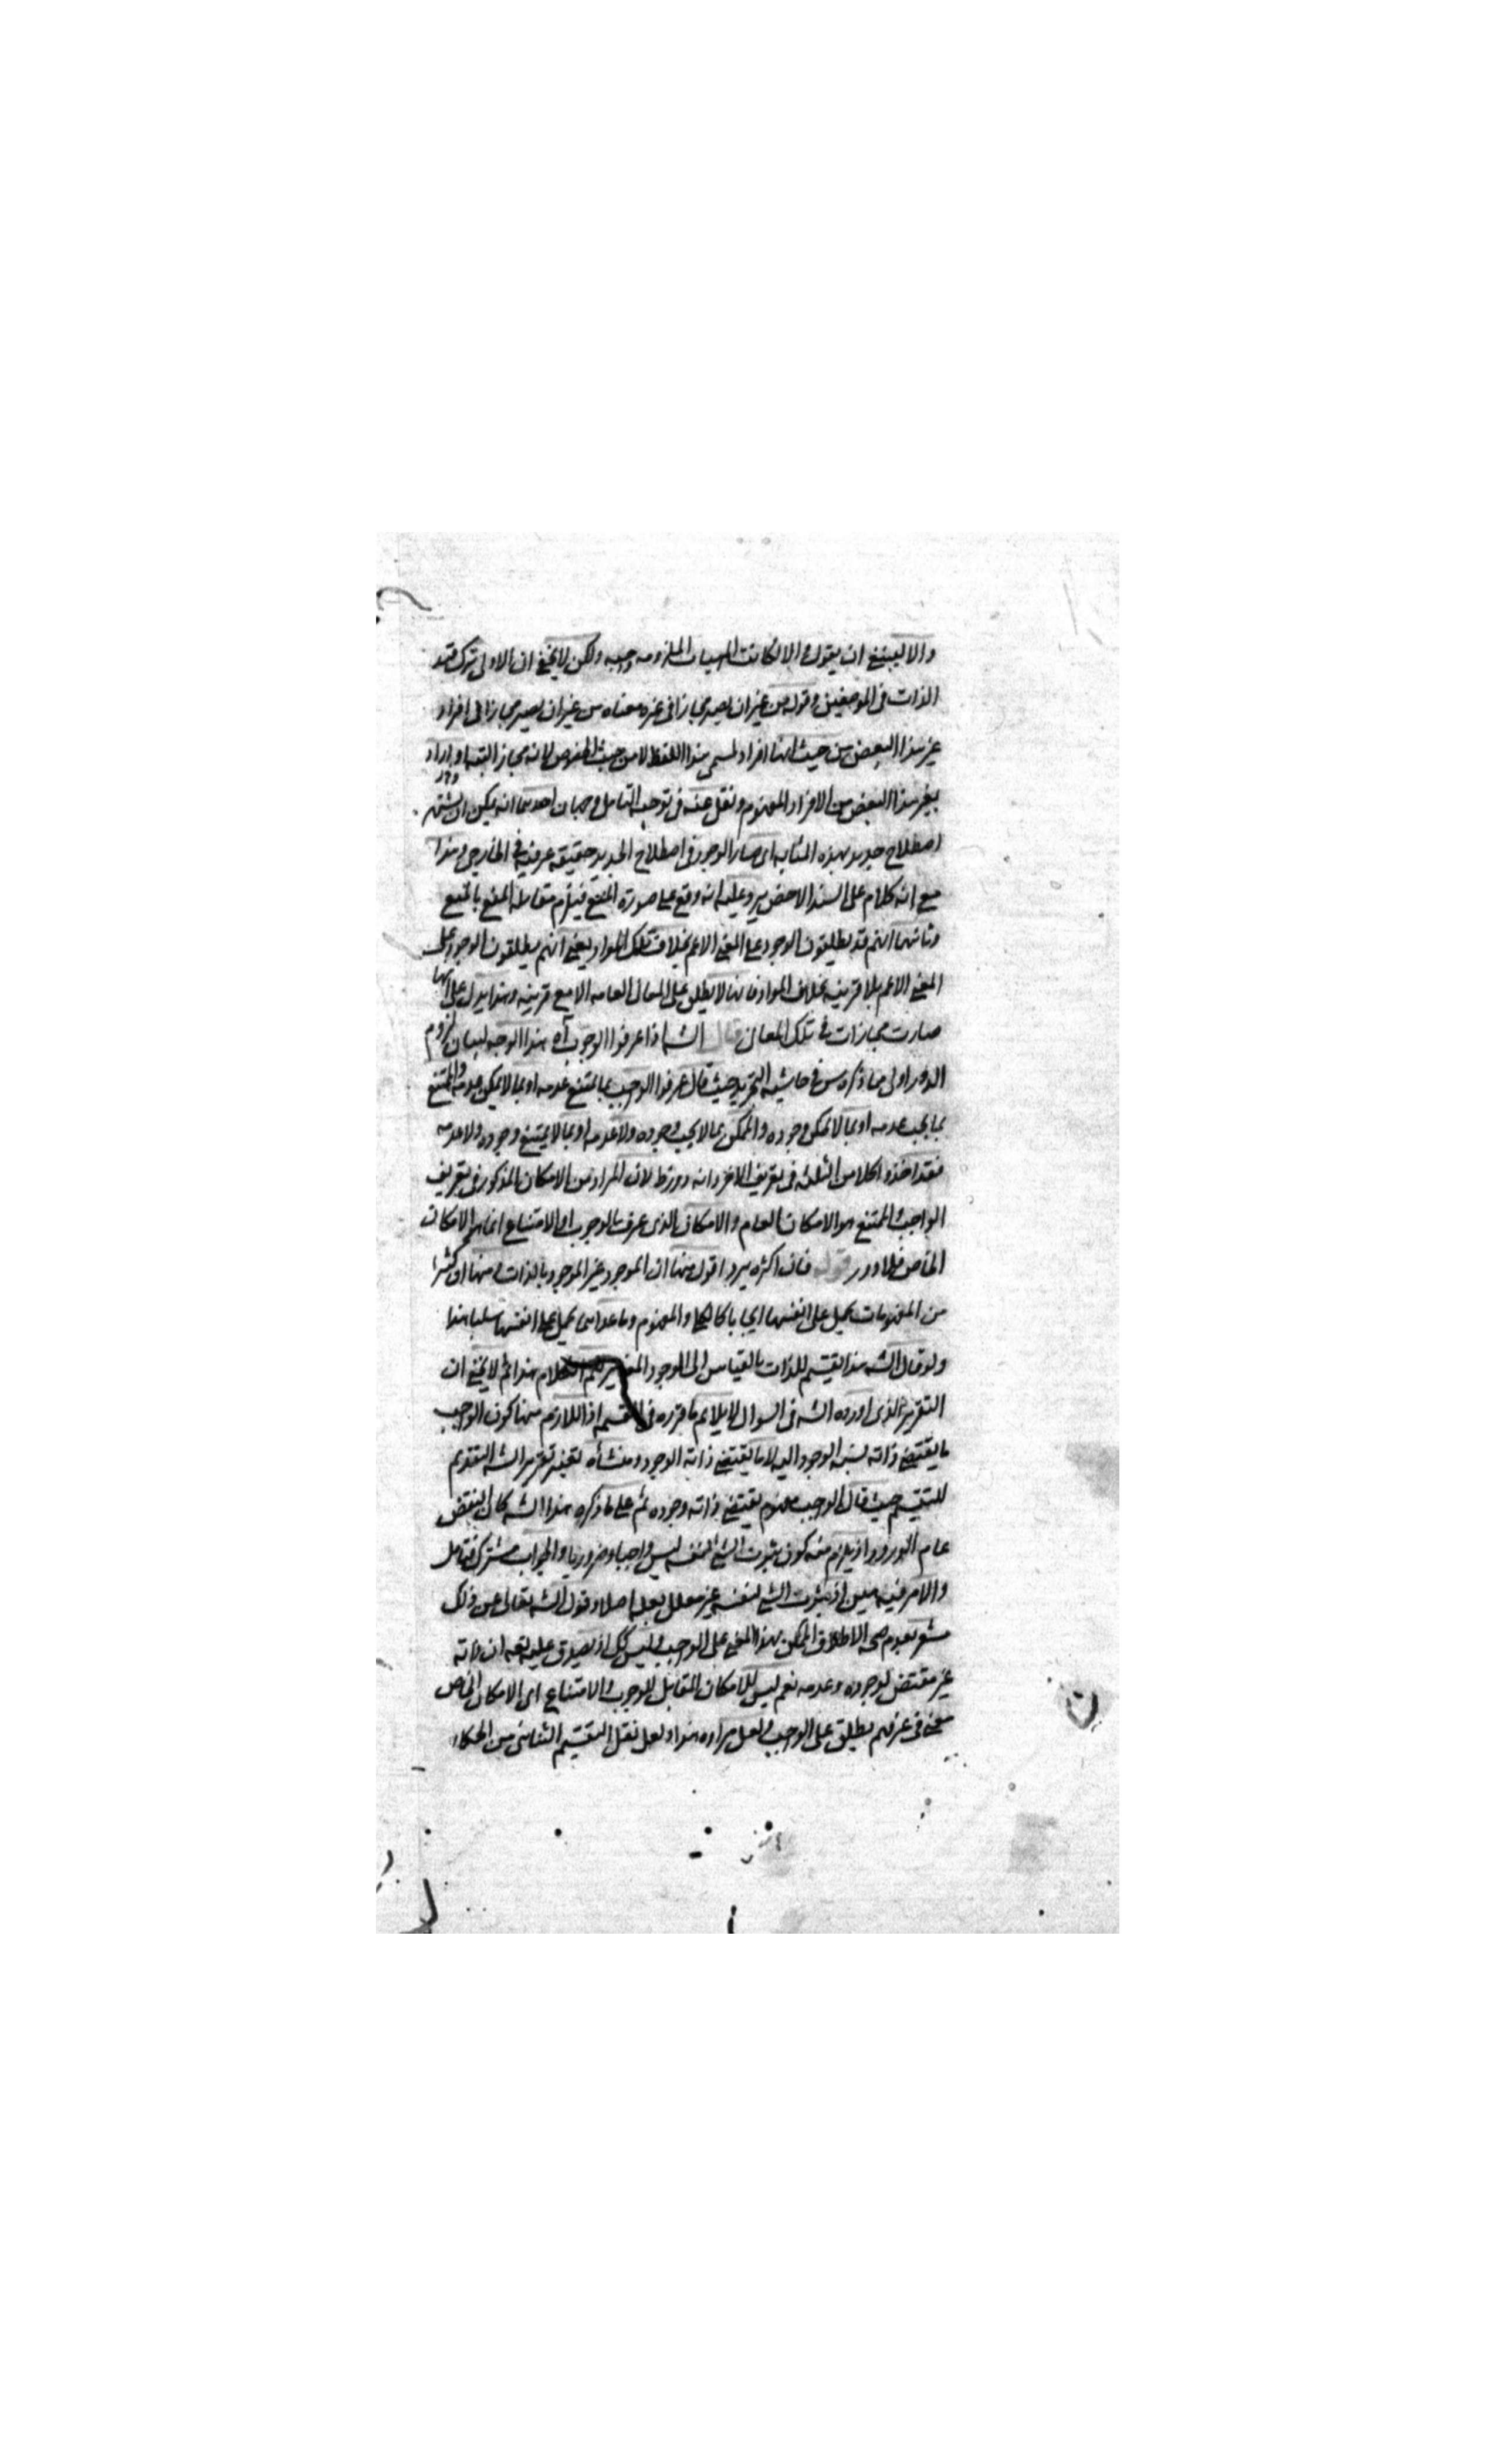 والا ينبغي ان يقول والا لكانت الماهيات الملزومة واجبة ولكن لا يخفى ان الاولى ترك قيد
الذات في الموضعين وقوله من غير ان يصير مجازا في غيره معناه من غير ان يصير مجازا في افراد
غير هذا البعض من حيث انها افراد لمسمى هذا اللفظ لا من حيث الخصوص لانه مجاز البتة
بغير هذا البعض من الافراد المفهوم ونقل عنه في توجيه التامل وجهان احدهما انه يمكن ان يشتهر
اصطلاح جديد بهذه المثابة اى صار الوجود في اصطلاح الجديد حقيقة عرفية في الخارجي وهذا
مع انه كلام على السند الاخص يرد عليه انه وقع على صورة المنع فيلزم مقابلة المنع بالمنع
وثانيهما انهم قد يطلقون الوجود على المعنى الاعم بخلاف تلك المواد يعني انهم يطلقون الوجود على
المعنى الاعم بلا قرينة بخلاف المواد فانها لا يطلق على المعاني العامة الا مع قرينة وهذا يدل على انها
صارت مجازات في تلك المعاني قال الشـ اذا عرفوا الوجوب آه هذا الوجه لبيان لزوم
الدور اولى مما ذكره س في حاشية التجريد حيث قال عرفوا الواجب بما يمتنع عدمه او بما لا يمكن عدمه والممتنع
بما يجب عدمه او بما لا يمكن وجوده والممكن بما لا يجب وجوده ولا عدمه او بما لا يمتنع وجوده ولا عدمه
فقد اخذوا كلا من الثلثة في تعريف الاخر وانه دور ظ لان المراد من الامكان المذكور في تعريف
الواجب والممتنع هو الامكان العام والامكان الذى عرف بالوجوب او الامتناع انما هو الامكان
الخاص فلا دور قوله فان اكثره يرد اقول منها ان الموجود غير الموجود بالذات ومنها ان كثيرا
من المفهومات يحمل على انفسها ايجابا كالكلي والمفهوم وما عداها يحمل على انفسها سلبا هذا
ولو قال الشـ هذا تقسيم للذات بالقياس الى الوجود الكلام هذا ثم لا يخفى ان
التقرير الذى اورده الشـ في السوال لا يلائم ما قرره في التقسيم اذ اللازم ههنا كون الواجب
ما يقتضي ذاته نسبة الوجود اليه لا ما يقتضي ذاته الوجود ومنشأه تغيير تقرير الشـ القديم
للتقسيم حيث قال الواجب مفهوم يقتضي ذاته وجوده ثم على ما ذكره هذا الشـ كان النقض
عام الورود اذ يلزم منه كون ثبوت الشئ لنفسه ليس واجبا وضروريا والجواب مشترك فتامل
والامر فيه هين اذ ثبوت الشئ لنفسه غير معلل بعلة اصلا وقول الشـ تعالى عن ذلك
مشعر بعدم صحة الاطلاق الممكن بهذا المعنى على الواجب وليس كك اذ يصدق عليه تعه ان ذاته
غير مقتض لوجوده وعدمه نعم ليس للامكان المقابل للوجوب والامتناع اى الامكان الخاص
معنى في عرفهم يطلق على الواجب ولعل مراده هذا ولعل نقل التقسيم الثنائي من الحكماء